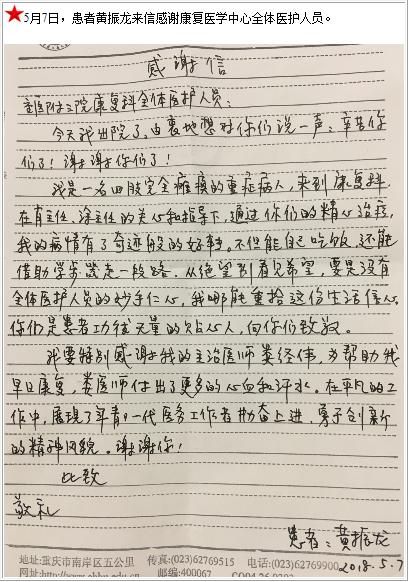 5月7日，患者黄振龙来信感谢康复医学中心全体医护人员。
感谢信
重医附二院康复科全体医护人员：
今天我出院了，由衷地想对你们说一声：辛苦你
们了！谢谢你们了！
我是一名四肢完全瘫痪的重症病人，来到康复科，
在肖主任、涂主任的关心和指导下，通过你们的精心治疗，
我的病情有了奇迹般的好转，不但能自己吃饭，还能
借助学步器走一段路。从绝望到看见希望，要是没有
全体医护人员的妙手仁心，我哪能重拾这份生活信心。
你们是患者功德无量的贴心人，向你们致敬。
我要特别感谢我的主治医师娄经伟，为帮助我
早日康复，娄医师付出了更多的心血和汗水。在平凡的工
作中，展现了年青一代医务工作者勤奋上进，勇于创新
的精神风貌。谢谢你！
此致
敬礼
患者：黄振龙
地址:重庆市南岸区五公里 传真:(023)62769515 电话:(023)62769900
2018.5.7
邮编:400067